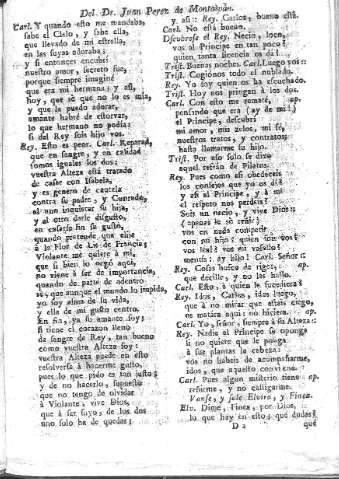 Del. Dr. Juan Perez de Montalvan.
Carl. Y quando esto me mandaba,
sabe el Cielo, y sabe ella,
que llevado de mi estrella,
en las suyas adoraba;
y si entonces encubrí
nuestro amor, secreto fue,
porque siempre imaginé
que era mi hermana; y así,
hoy, que sé que no lo es mia,
y que la puedo adorar,
amante habré de estorvar,
lo que hermano no podia;
si del Rey sois hijo vos.
Rey. Esto es peor. Carl. Reparad,
que en sangre, y en calidad
somos iguales los dos:
vuestra Alteza está tratado
de casar con Isabela,
y es genero de cautela
contra su padre, y Cuñado,
el uno inquietar su hija,
y al otro darle disgusto,
en casarse sin su gusto,
quando pretende que elija
á la Flor de Lis de Francia;
Violante me quiere á mí,
que si bien lo negó aquí,
no viene á ser de importancia,
quando de parte de adentro
sé, que aunque el mundo lo impida,
yo soy alma de su vida,
y ella de mi gusto centro.
En fin, yo su amante soy;
si tiene el corazon lleno
de sangre de Rey, tan bueno
como vuestra Alteza soy:
vuestra Alteza puede en esto
resolverse á hacerme gusto,
pues lo que pido es tan justo;
y de no hacerlo, supuesto
que no tengo de olvidar
á Violante, vive Dios,
que á ser suyo de los dos
uno solo ha de quedar;
y, así:: Rey. Carlos, bueno está.
Carl. No está bueno.
Descubrese el Rey. Necio, loco,
vos al Principe en tan poco?
quien tanta licencia os dá?
Trist. Buenas noches. Carl. Luego vos::
Trist. Cogiónos todo el nublado.
Rey. Yo soy quien os ha escuchado.
Trist. Hoy nos pringan á los dos.
Carl. Con esto me rematé, ap.
pensando que era (ay de mí!)
el Principe, descubrí
mi amor, mis zelos, mi fe,
nuestros tratos, y contratos,
hasta llamarme su hijo.
Trist. Por eso solo se dixo
aquel refrán de Pilatos.
Rey. Pues como así obedeceis
los consejos que yo os dí?
y así al Principe, y á mí
el respeto nos perdeis?
Sois un necio, y vive Dios::
(apenas le sé reñir)
vos en nada competir
con mi hijo? quien sois vos?
vos leal? vos mi vasallo?
mentís: ay hijo! Carl. Señor::
Rey. Catlos busco de rigor, ap.
que decille, y no las hallo.
Carl. Esto, á quien le sucediera?
Rey. Idos, Carlos, idos luego,
que á no mirar que estais ciego,
os matára aquí: no hiciera. ap.
Carl. Yo, señor, siempre á su Alteza::
Rey. Nadie al Principe se oponga
si no quiere que le ponga
á sus plantas la cabeza:
vos no habeis de acompañarme,
idos, que aquello conviene.
Carl. Pues algun misterio tiene ap.
reñirme, y no castigarme.
Vanse, y sale Elvira, y Finea.
Elv. Dime, Finea, por Dios,
lo que hay en esto; qué dudas?
D 2 qué